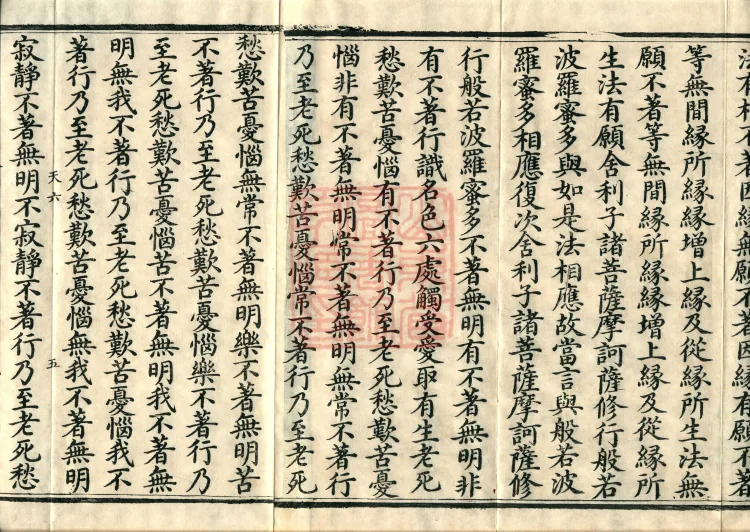 法有相不著因縁無願不著因縁有願不著
等無間縁所縁縁增上縁及從縁所生法無
願不著等無間縁所縁縁增上縁及從縁所
生法有願舍利子諸菩薩摩訶薩修行般若
波羅蜜多與如是法相應故當言與般若波
羅蜜多相應復次舍利子諸菩薩摩訶薩修
行般若波羅蜜多不著無明有不著無明非
有不著行識名色六處觸受愛取有生老死
愁歎苦憂惱有不著行乃至老死愁歎苦憂
惱非有不著無明常不著無明無常不著行
乃至老死愁歎苦憂惱常不著行乃至老死
愁歎苦憂惱無常不著無明樂不著無明苦
不著行乃至老死愁歎苦憂惱樂不著行乃
至老死愁歎苦憂惱苦不著無明我不著無
明無我不著行乃至老死愁歎苦憂惱我不
著行乃至老死愁歎苦憂惱無我不著無明
天六 五
寂靜不著無明不寂靜不著行乃至老死愁